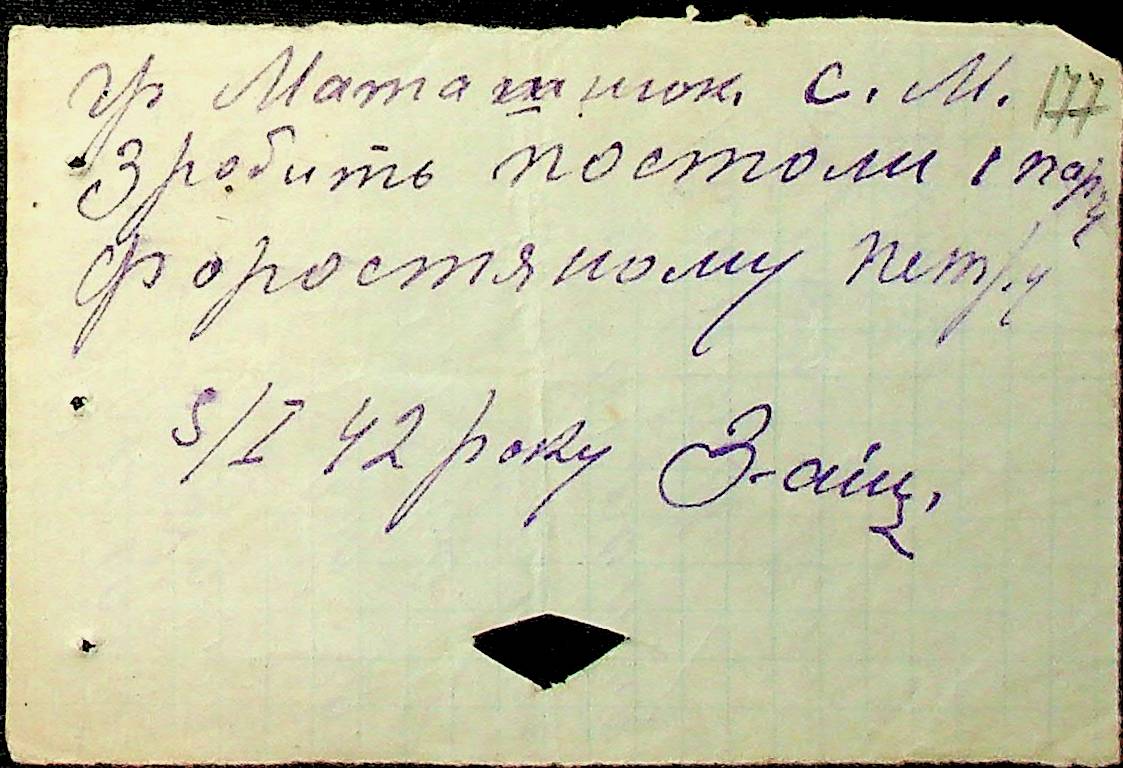 гр Маташнюк. С. М. 177
Зробить постоли 1 пару
Форостяному Петру
5/I 42 року З-аїц,